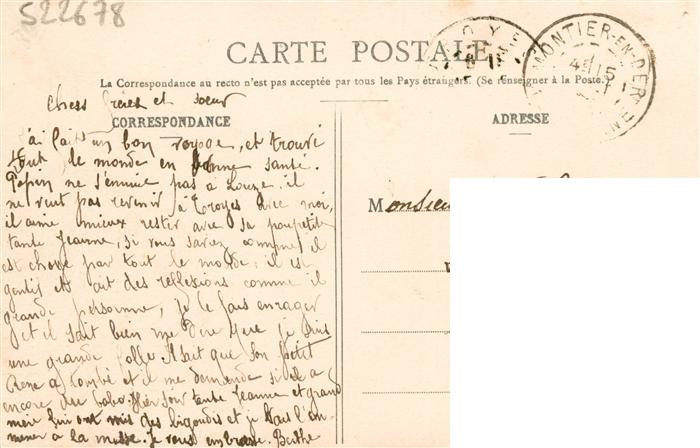 522678
CARTE POSTALE
La Correspondance au recto n'est pas acceptée par tous les Pays étrangers. (Se renseigner à la Poste.)
chers frères et sœur
CORRESPONDANCE
ADRESSE
MONTIER-EN-DER
j'ai fait un bon voyage, et trouvé
tout le monde en bonne santé.
Pépin ne s'ennuie pas à Louze, il
ne veut pas revenir à Troyes avec moi,
il aime mieux rester avec sa petite
tante Jeanne, si vous saviez comme il
est choyé par tout le monde, il est
gentil et fait des réflexions comme il
grande personne, je le fais enrager
et il sait bien me dire que je suis
une grande folle. Il sait que son petit
René a tombé et il me demande s'il a
encore du bobo. Hier soir tante Jeanne et grand
mère lui ont mis des bigoudis et je vais l'em-
mener à la messe. Je vous embrasse. Berthe
Monsieur